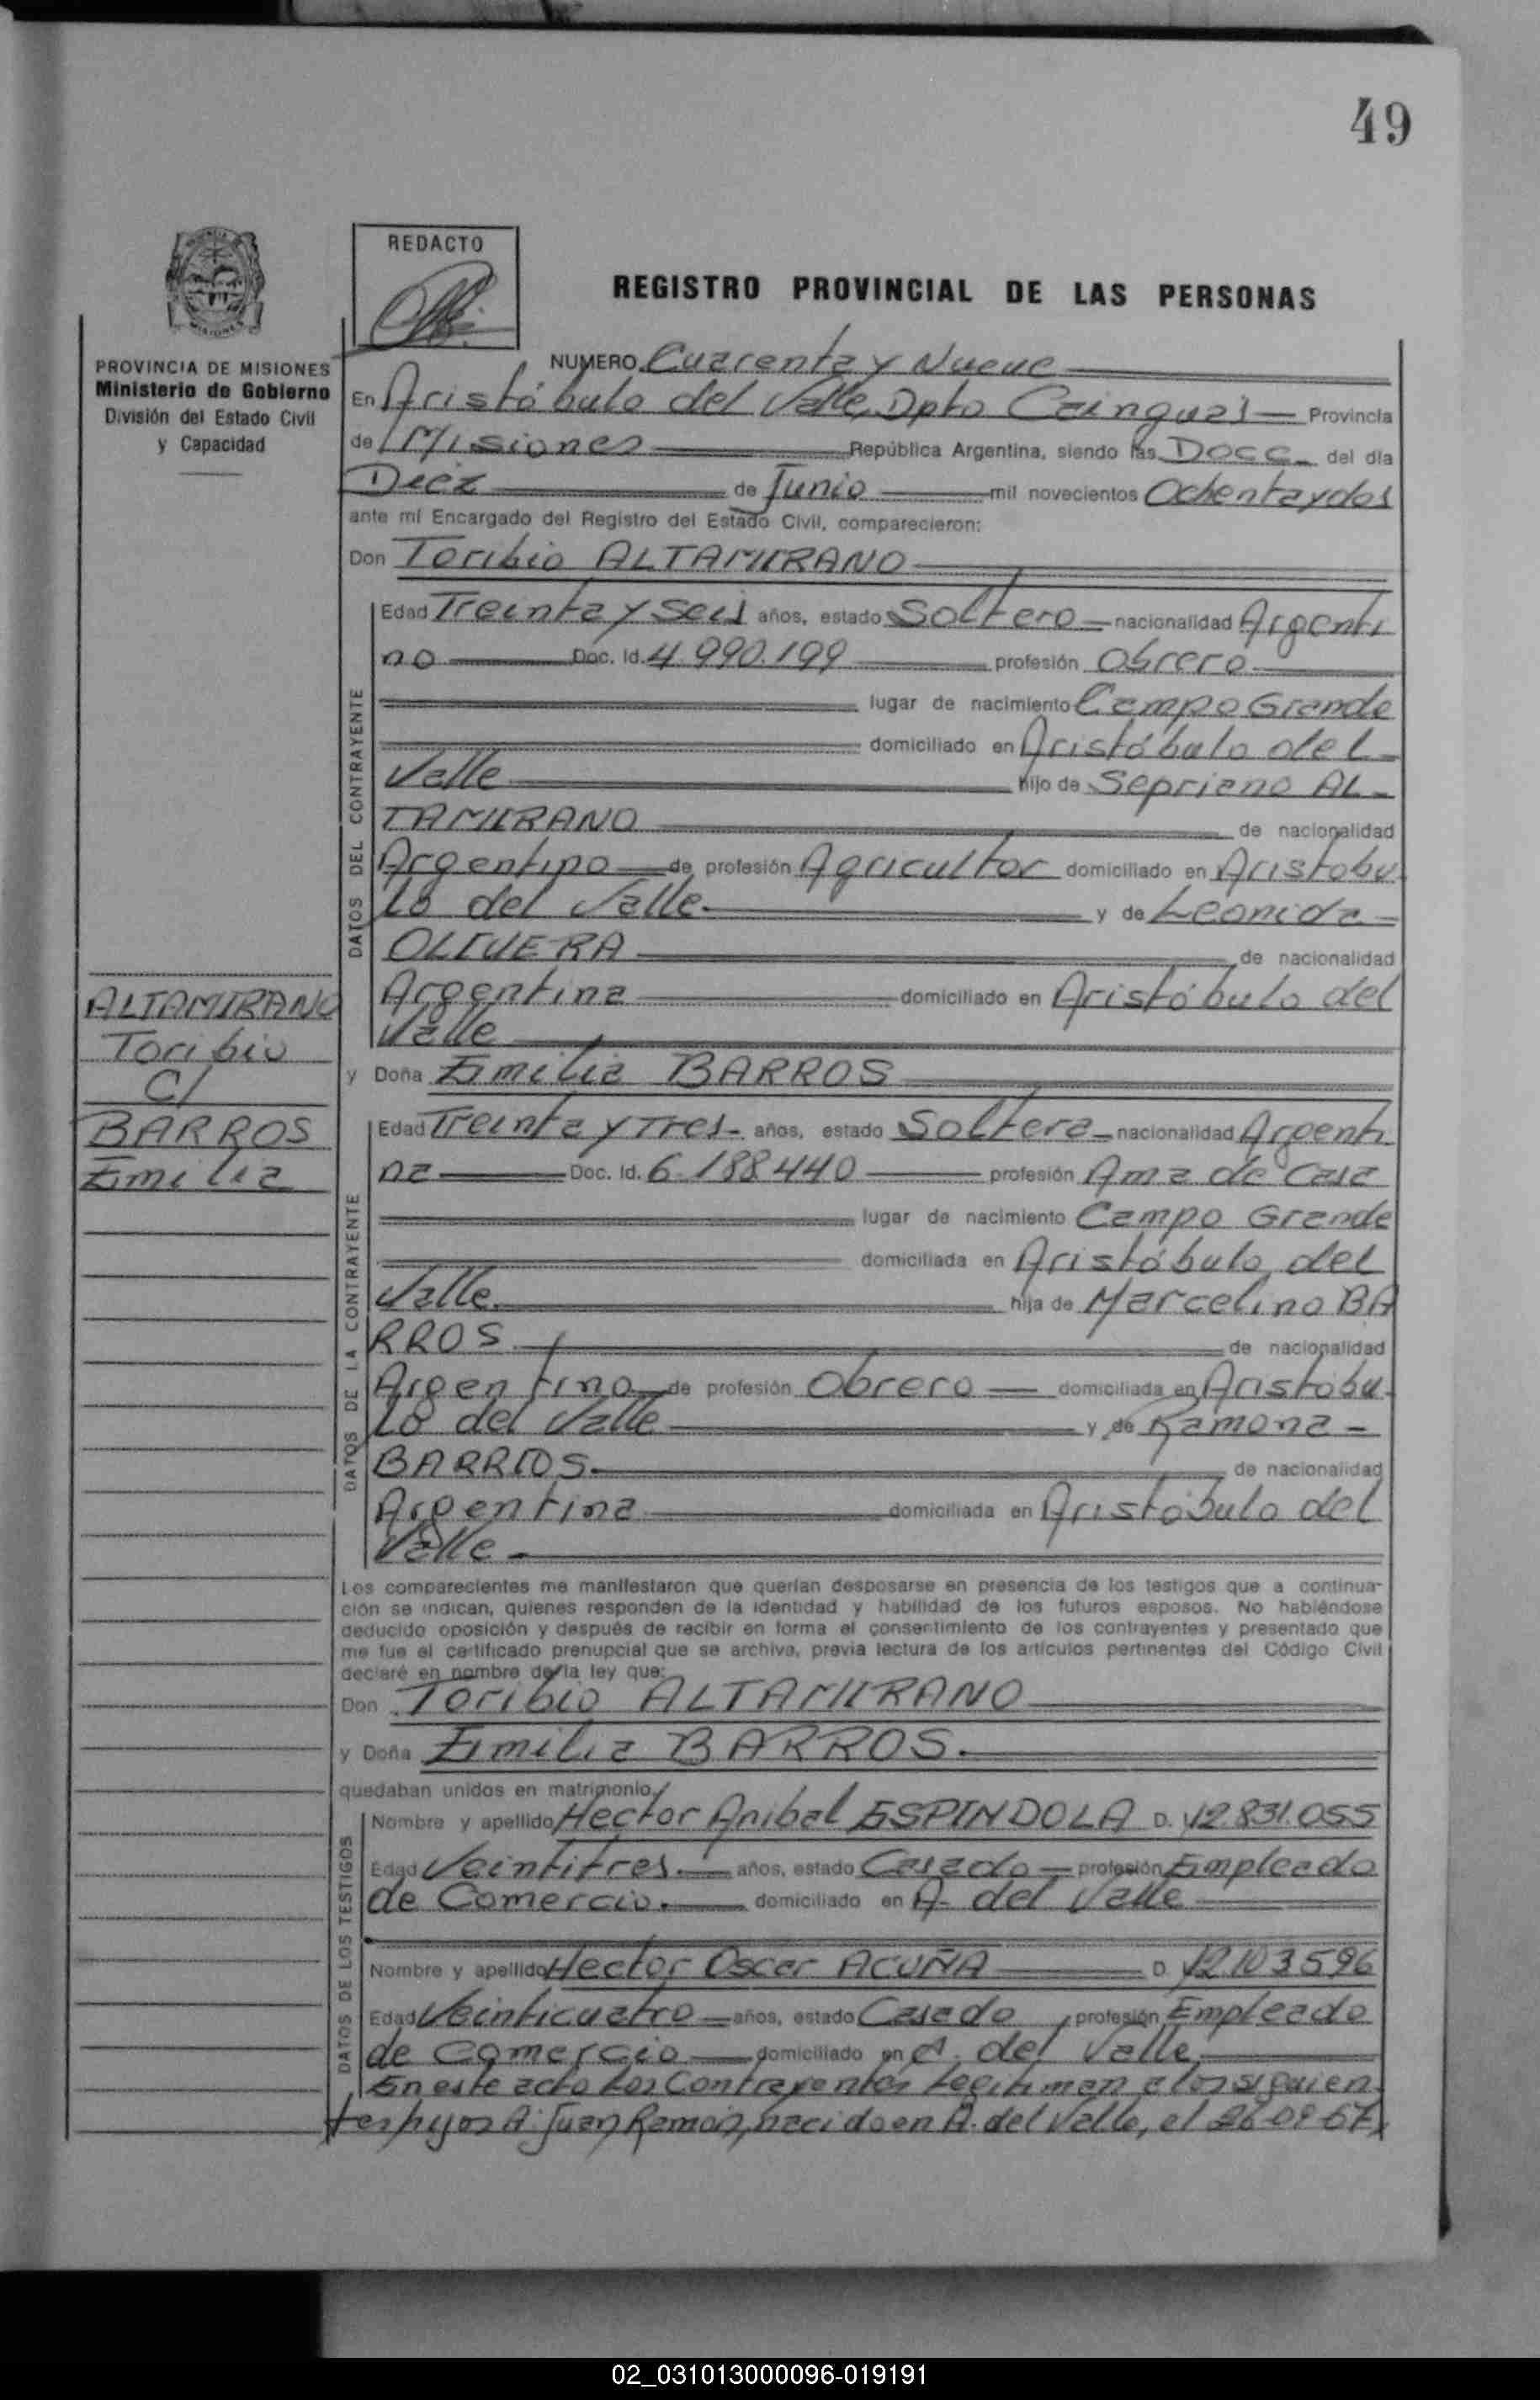 49
REDACTO
REGISTRO PROVINCIAL DE LAS PERSONAS
PROVINCIA DE MISIONES
Ministerio de Gobierno
División del Estado Civil
y Capacidad
NUMERO Cuarenta y Nueve
En Aristóbulo del Valle, Dpto Cainguás Provincia
de Misiones República Argentina, siendo las Doce del día
Diez de Junio mil novecientos Ochenta y dos
ante mí Encargado del Registro del Estado Civil, comparecieron:
Don Toribio ALTAMIRANO
DATOS DEL CONTRAYENTE
Edad Treinta y Seis años, estado Soltero nacionalidad Argenti
no Doc. Id. 4.990.199 profesión Obrero
lugar de nacimiento Campo Grande
domiciliado en Aristóbulo del
Valle hijo de Sepriano AL-
TAMIRANO de nacionalidad
Argentino de profesión Agricultor domiciliado en Aristobu
lo del Valle. y de Leonida
OLIVERA de nacionalidad
Argentina domiciliado en Aristóbulo del
Valle
ALTAMIRANO
Toribio
C/
BARROS
Emilia
y Doña Emilia BARROS
DATOS DE LA CONTRAYENTE
Edad Treinta y Tres años, estado Soltera nacionalidad Argenti
na Doc. Id. 6.188.440 profesión Ama de Casa
lugar de nacimiento Campo Grande
domiciliada en Aristóbulo del
Valle. hija de Marcelino BA
RROS de nacionalidad
Argentino de profesión Obrero domiciliada en Aristóbu
lo del Valle y de Ramona
BARRIOS. de nacionalidad
Argentina domiciliada en Aristóbulo del
Valle
Los comparecientes me manifestaron que querían desposarse en presencia de los testigos que a continua-
ción se indican, quienes responden de la identidad y habilidad de los futuros esposos. No habiéndose
deducido oposición y después de recibir en forma el consentimiento de los contrayentes y presentado que
me fue el certificado prenupcial que se archiva, previa lectura de los artículos pertinentes del Código Civil
declaré en nombre de la ley que:
Don Toribio ALTAMIRANO
y Doña Emilia BARROS.
quedaban unidos en matrimonio.
DATOS DE LOS TESTIGOS
Nombre y apellido Hector Anibal ESPINDOLA D. 12.831.055
Edad Veintitres. años, estado Casado profesión Empleado
de Comercio. domiciliado en A. del Valle
Nombre y apellido Hector Oscar ACUÑA D 12103596
Edad Veinticuatro años, estado Casado profesión Empleado
de Comercio domiciliado en A. del Valle
En este acto los Contrayentes legitiman a los siguien
tes hijos A: Juan Ramón, nacido en A. del Valle, el
02_031013000096-019191